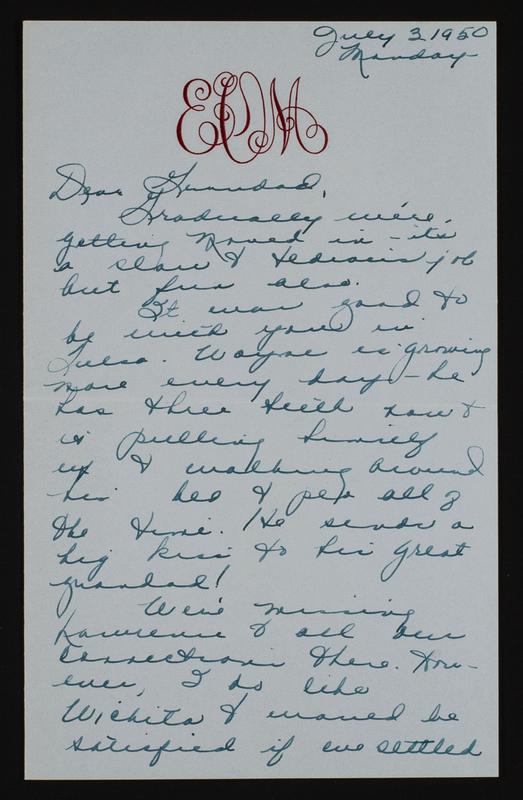 July 3 1950
Monday
EPM
Dear Grandad,
Gradually we're
getting moved in - its
a slow & tedious job
but fun also.
It was good to
be with you in
Tulsa. Wayne is growing
more every day - he
has three teeth now &
is pulling himself
up & walking around
his bed & pen all of
the time. He sends a
big kiss to his great
grandad!
We're missing
Lawrence & all our
connections there. How-
ever, I do like
Wichita & would be
satisfied if we settled